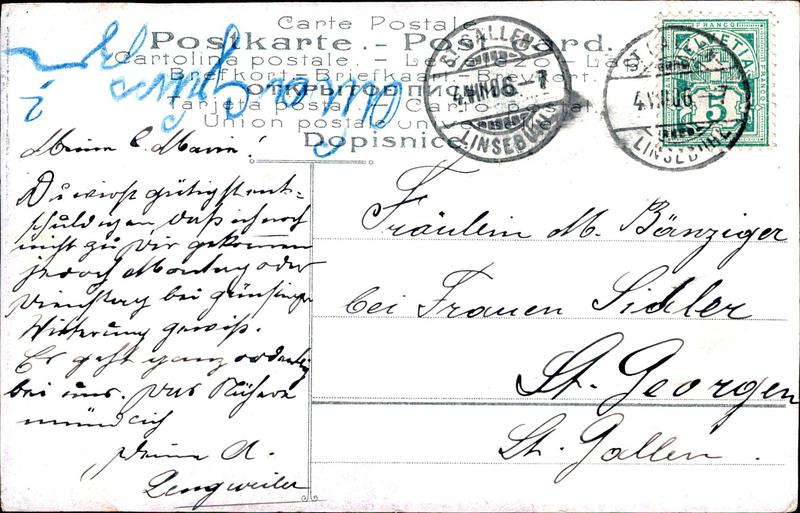 Carte Postale
Postkarte. - Post Card.
Cartolina postale. -
Brefkort. Briefkaart. - Brevkort.
ОТКРЫТОЕ
Tarjeta postal. - Carto postal.
Union postale
Dopisnice
ST. GALLEN
LINSEBÜHL
4.VIII.06.-7
ST. GALLEN
LINSEBÜHL
4.VIII.06.
FRANCO
HELVETIA
5
Meine l. Marie!
Du wirst gütigst ent-
schuldigen, daß ich noch
nicht zu Dir gekommen
jedoch Montag oder
Dienstag bei günstiger
Witterung gewiß.
Es geht ganz ordentlig
bei uns. Das Nähere
mündlich
Deine A.
Lengweiler
Fräulein M. Bänziger
bei Frauen Sidler
St. Georgen
St. Gallen.